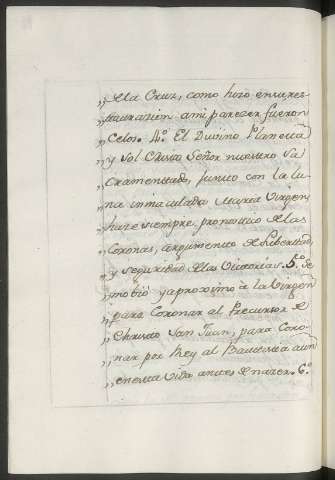 „ de la Cruz, como hizo en su res-
„ tauracion ami parezer fueron
„ Celos. 4.º El Divino Planeta
„ y Sol Christo Señor nuestro Sa
„ cramentado, junto con la lu-
„ na inmaculada Maria Virgen
„ haze siempre pronostico de las
„ Coronas, argumento de libertad,
„ y seguridad de las Victorias. 5.º Se
„ mobió y aproximó à la Virgen
„ para Coronar al Precursor de
„ Christo San Juan, para Coro-
„ nar por Rey al Bautista aun
„ en esta vida antes de nazer. 6.º